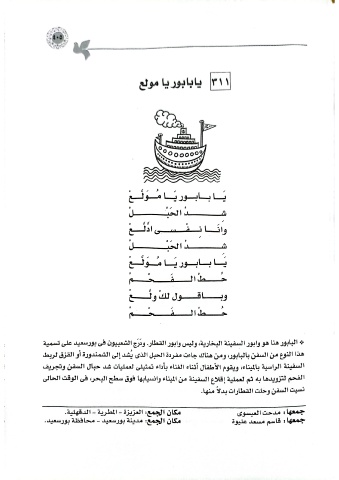 ٤٠٥
٣١١ يا بابور يا مولع
يَـا بـابـور يَـا مُـوَلَّـع
شـد الحَبْـل
وأنَـا نِـفْـسـى أدَلَّـع
شـد الحَبْـل
يَـا بـابـور يَـا مُـوَلَّـع
حُـط الـفَـحْـم
وبـاقـول لَكْ ولَّـع
حُـط الـفَـحْـم
* البابور هنا هو وابور السفينة البخارية، وليس وابور القطار. ودَرَج الشعبيون فى بورسعيد على تسمية
هذا النوع من السفن بالبابور، ومن هناك جاءت مفردة الحبل الذى يُشد إلى الشمندورة أو القزق لربط
السفينة الراسية بالميناء، ويقوم الأطفال أثناء الغناء بأداء تمثيلى لعمليات شد حبال السفن وتجريف
الفحم لتزويدها به ثم لعملية إقلاع السفينة من الميناء وانسيابها فوق سطح البحر، فى الوقت الحالى
نسيت السفن وحلت القطارات بدلاً منها.
جمعها: مدحت العيسوى مكان الجمع: العزيزة - المطرية - الدقهلية.
جمعها: قاسم مسعد عليوة مكان الجمع: مدينة بورسعيد - محافظة بورسعيد.